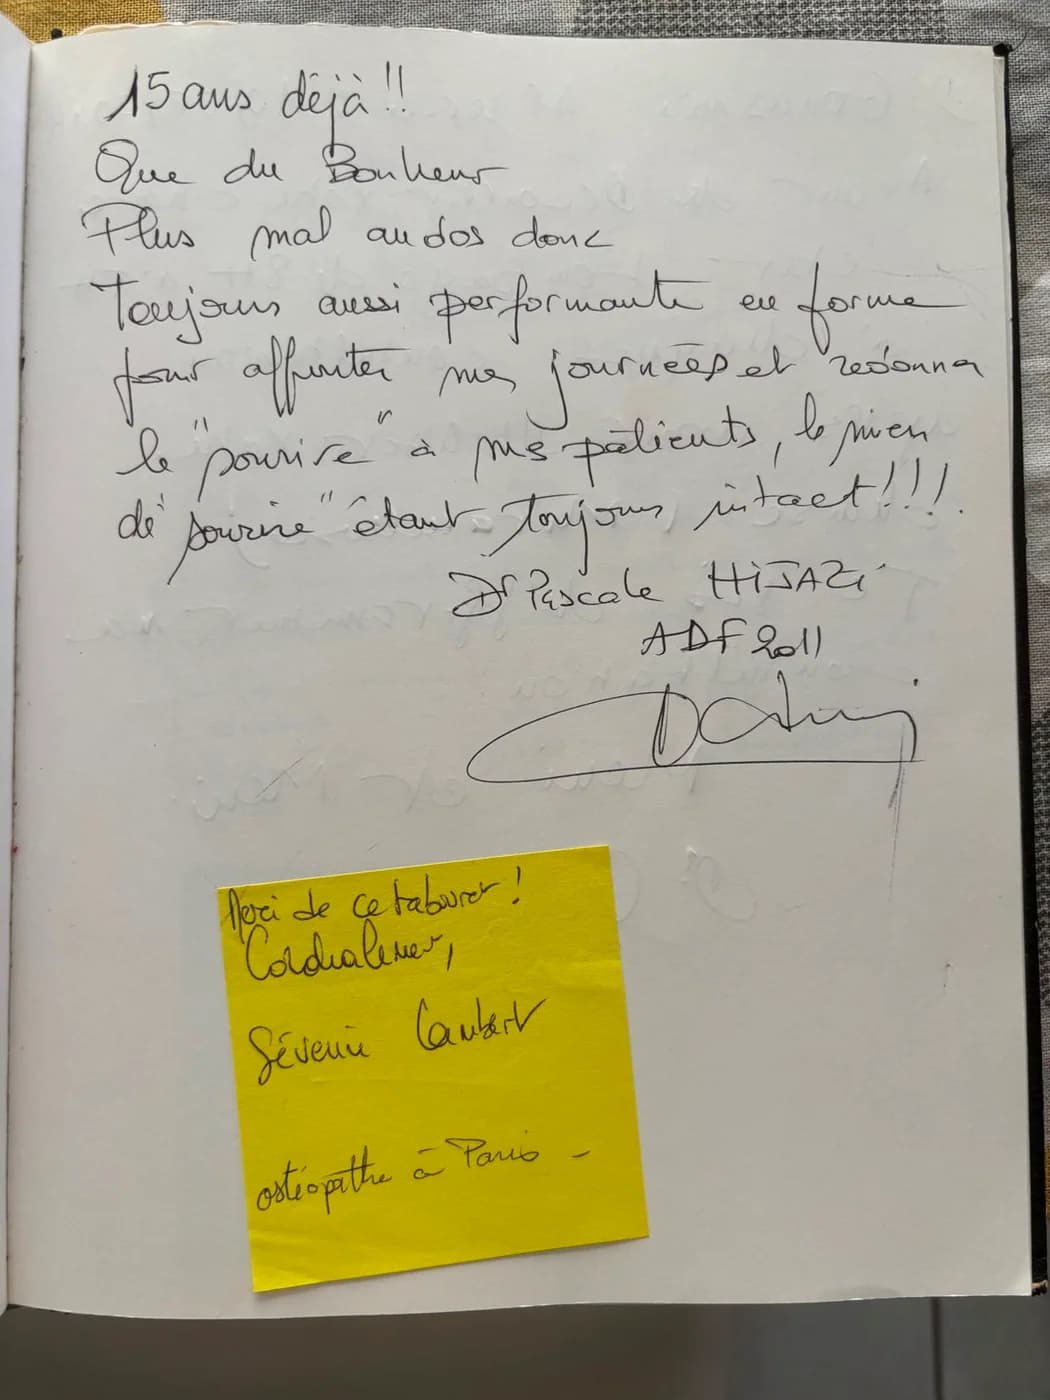 15 ans déjà !!
Que du Bonheur
Plus mal au dos donc
Toujours aussi performante en forme
pour affronter mes journées et redonner
le "sourire" à mes patients, le mien
de "sourire" étant toujours intact !!!
Dr Pascale HIJAZI
ADF 2011
Merci de ce tabouret !
Cordialement,
Séverine Lambert
ostéopathe à Paris -